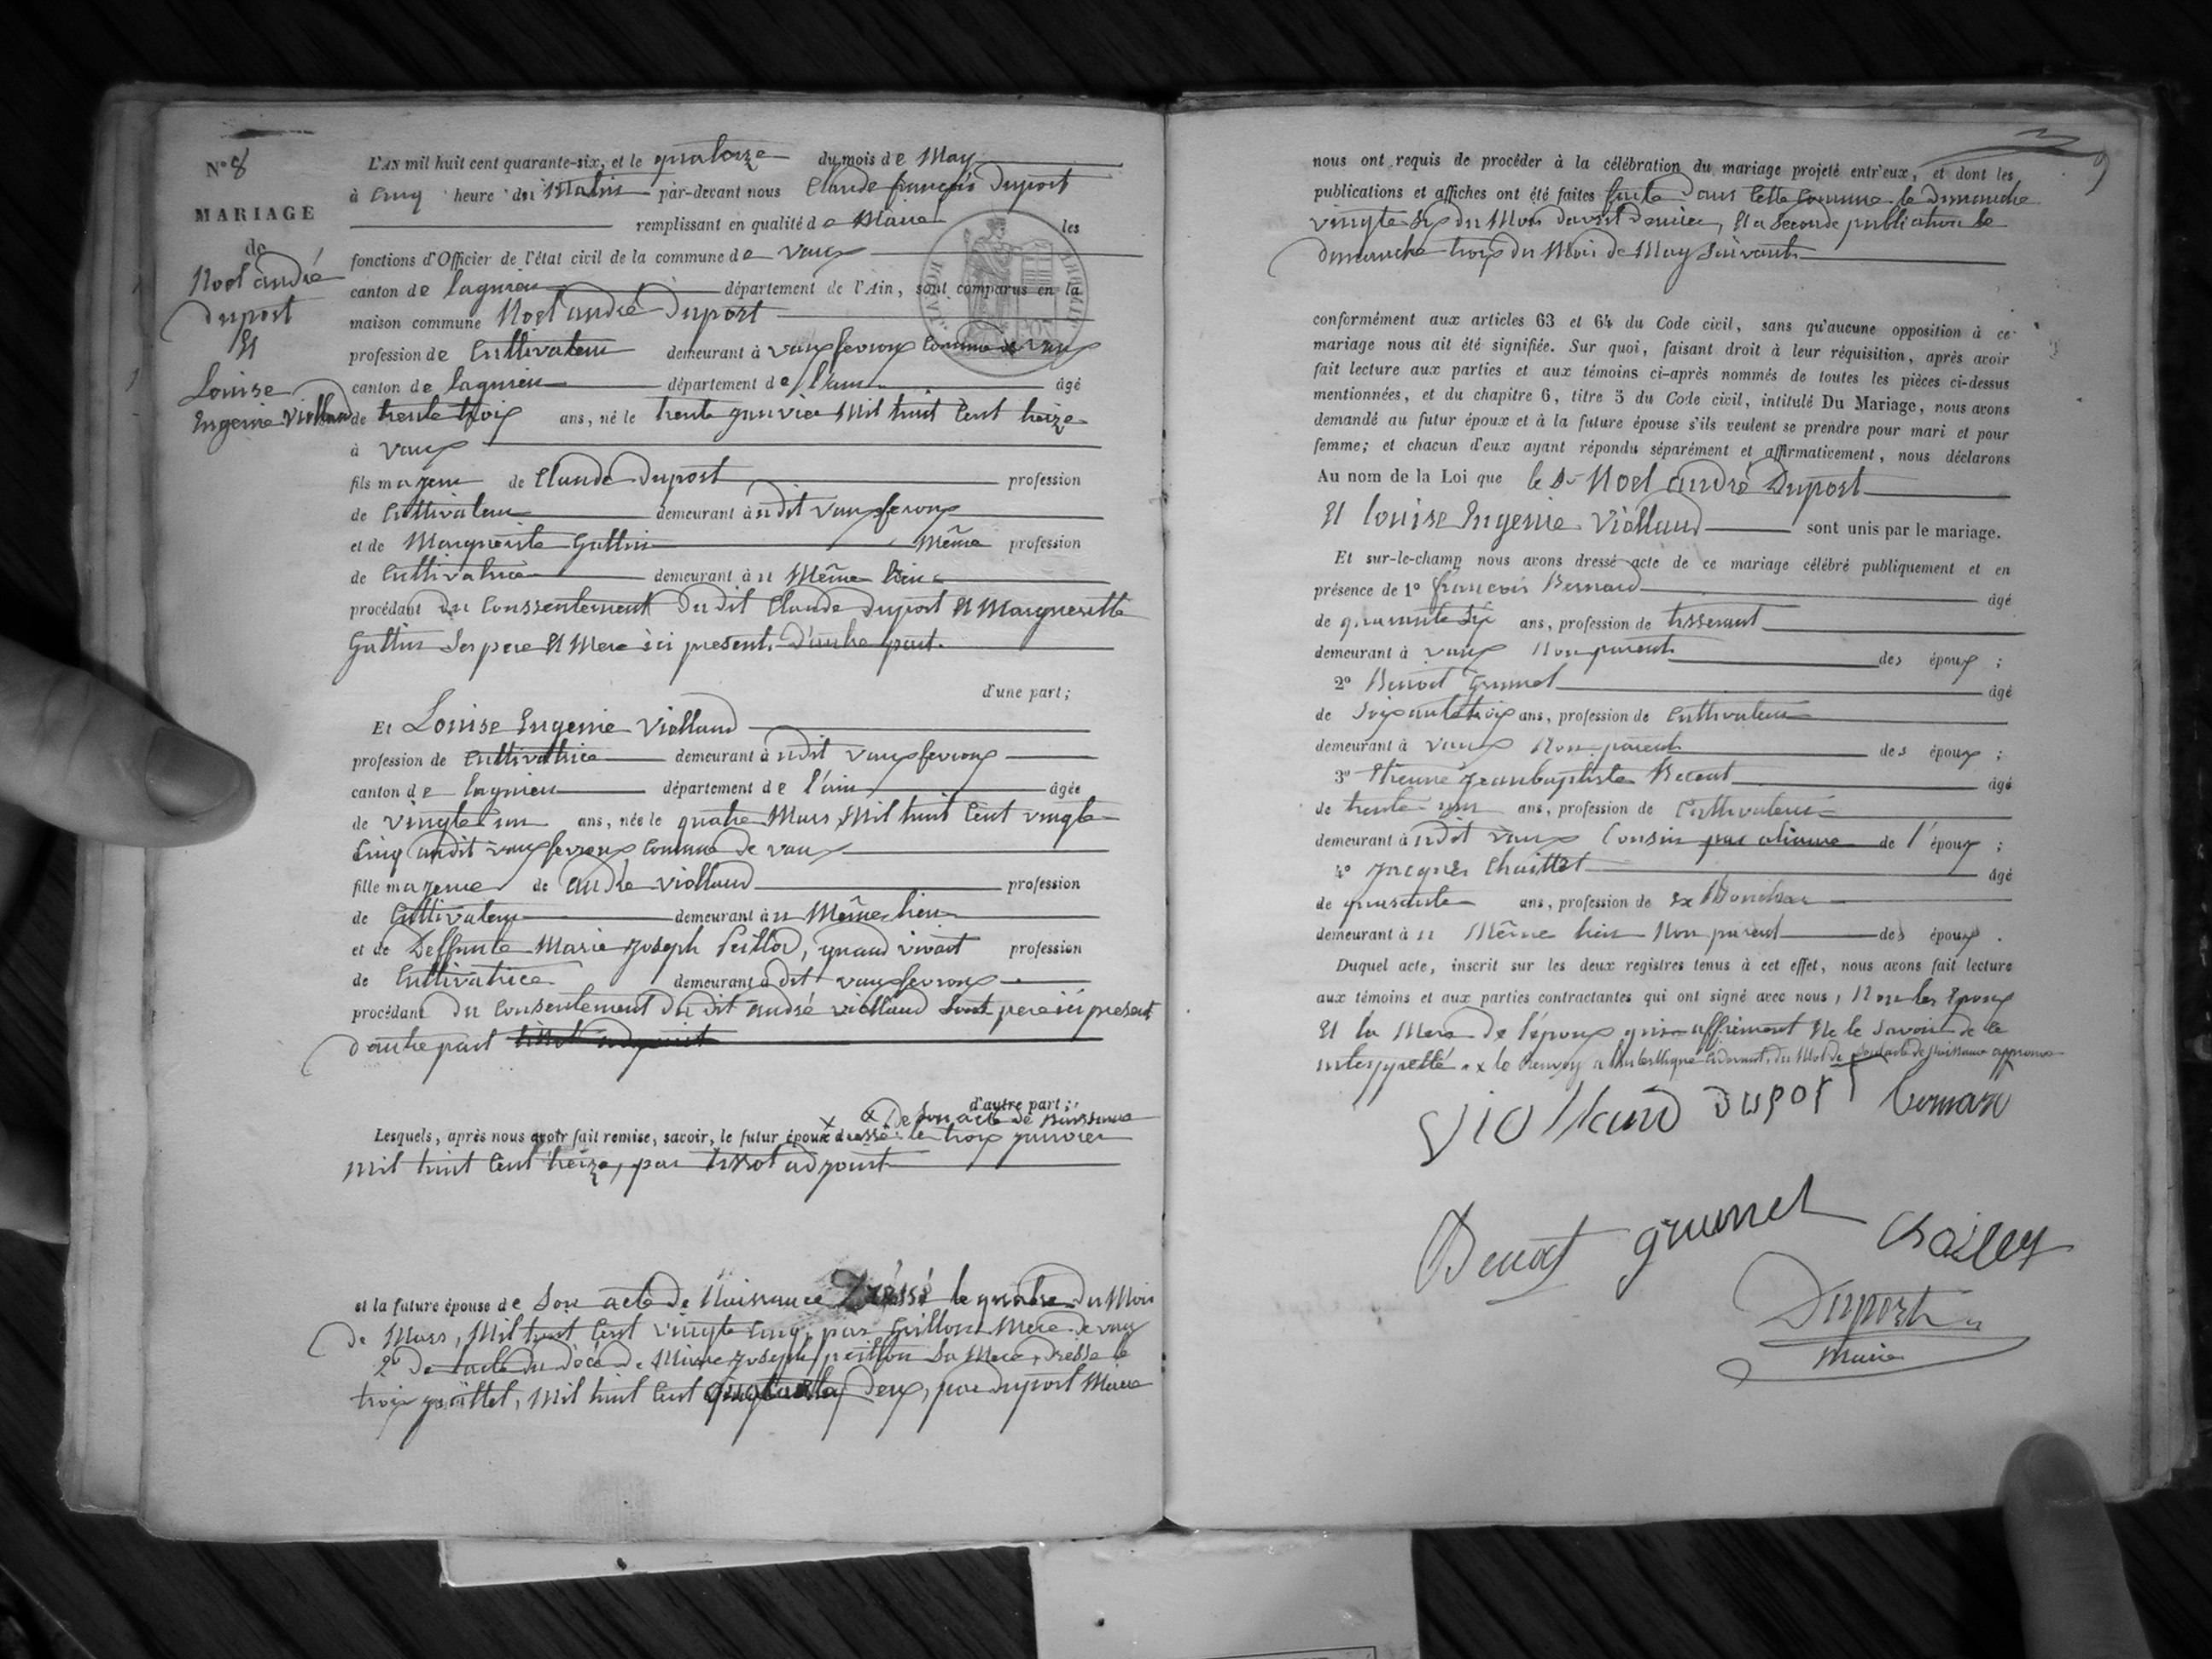 N° 8
MARIAGE
de
Noel andré
duport
Et
Louise
Eugenie Viollaud
L'AN mil huit cent quarante-six, et le quatorze du mois de May
à Cinq heure du Matin par-devant nous Claude françois Duport
remplissant en qualité de Maire les
fonctions d'Officier de l'état civil de la commune de Vaux
canton de lagnieu département de l'Ain, sont comparus en la
maison commune Noel andré Duport
profession de Cultivateur demeurant à Vauxfevroux Commune de Vaux
canton de lagnieu département de l'ain âgé
de trente trois ans, né le trente janvier Mil huit Cent treize
à Vaux
fils majeur de Claude Duport profession
de Cultivateur demeurant à udit Vauxfevroux
et de Marguerite Guttin Même profession
de Cultivatrice demeurant à u Même lieu
procédant du Conssentement Dudit Claude Duport Et Margueritte
Guttin Ses pere Et Mere ici present. D'autre part.
d'une part;
Et Louise Eugenie Viollaud
profession de Cultivatrice demeurant à udit Vauxfevroux
canton de lagnieu département de l'ain âgée
de Vingte un ans, née le quatre Mars Mil huit Cent vingte
Cinq audit Vauxfevroux Commune de Vaux
fille majeure de andré Viollaud profession
de Cultivateur demeurant à u Même lieu
et de Deffunte Marie Joseph Peillod, quand vivait profession
de Cultivatrice demeurant à dit Vauxfevroux
procédant du Consentement Du dit andré Viollaud Sont pere ici present
D'autre part
d'autre part;
x De Son acte de Naissance
Lesquels, après nous avoir fait remise, savoir, le futur époux x dressé le trois janvier
Mil huit Cent treize, par tissot adjoint
et la future épouse de Son acte de Naissance Dréssé le quatre du Mois
de Mars, Mil huit Cent Vingte Cinq, par Grillon Mere de vaux
2° De l'acte du décé de Marie Joseph peillon Sa Mere, dressé le
trois juillet, Mil huit Cent deux, par Duport Maire
9
nous ont requis de procéder à la célébration du mariage projeté entr'eux, et dont les
publications et affiches ont été faites faite Dans Cette Commune le dimanche
Vingte Six du Mois davril Dernier, Et la Seconde publication le
dimanche trois du Mois de May Suivant
conformément aux articles 63 et 64 du Code civil, sans qu'aucune opposition à ce
mariage nous ait été signifiée. Sur quoi, faisant droit à leur réquisition, après avoir
fait lecture aux parties et aux témoins ci-après nommés de toutes les pièces ci-dessus
mentionnées, et du chapitre 6, titre 5 du Code civil, intitulé Du Mariage, nous avons
demandé au futur époux et à la future épouse s'ils veulent se prendre pour mari et pour
femme; et chacun d'eux ayant répondu séparément et affirmativement, nous déclarons
Au nom de la Loi que le Sr Noel andré Duport
Et louise Eugenie Viollaud sont unis par le mariage.
Et sur-le-champ nous avons dressé acte de ce mariage célébré publiquement et en
présence de 1° françois Bernard âgé
de quarante Six ans, profession de tisserant
demeurant à Vaux Non parent des époux ;
2° Benoit Grumet âgé
de Soixante trois ans, profession de Cultivateur
demeurant à Vaux Non parent des époux ;
3° Etienne Jeanbaptiste âgé
de trente un ans, profession de Cultivateur
demeurant à udit Vaux Cousin par aliance de l'époux ;
4° Jacques Chaillet âgé
de quarante ans, profession de
demeurant à u Même lieu Non parent des époux .
Duquel acte, inscrit sur les deux registres tenus à cet effet, nous avons fait lecture
aux témoins et aux parties contractantes qui ont signé avec nous, Non les Epoux
Et la Mere de l'époux qui affirement Ne le Savoir de ce
interppellé x le Renvoy Son acte de Naissance approuvé
Viollaud Duport bernard
Benoit grumet Chailley
Duport
Maire